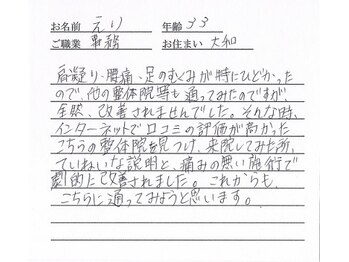 お名前 えり 年齢 33
ご職業 事務 お住まい 大和
肩凝り・腰痛・足のむくみが特にひどかった
ので、他の整体院等も通ってみたのですが、
全然、改善されませんでした。そんな時、
インターネットで口コミの評価が高かった
こちらの整体院を見つけ、来院してみた所、
ていねいな説明と、痛みの無い施術で
劇的に改善されました。これからも、
こちらに通ってみようと思います。